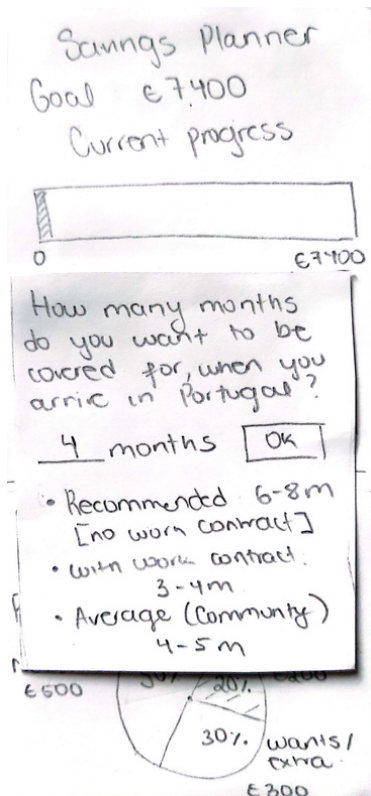 Savings Planner
Goal €7.400
Current progress
0 €7400
How many months
do you want to be
covered for, when you
arrive in Portugal?
4 months OK
• Recommended 6-8m
[no work contract]
• with work contract:
3-4m
• Average (Community)
4-5m
€500
20%
30% wants/
extra
€300